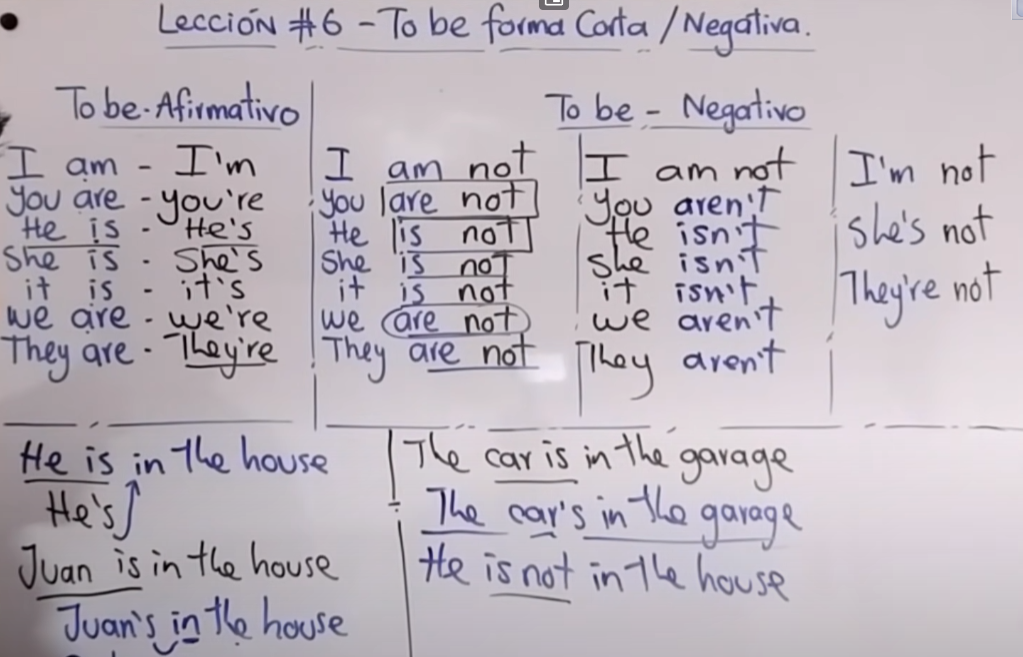 Lección #6 - To be forma Corta / Negativa.
To be - Afirmativo
I am - I'm
you are - you're
He is - He's
She is - She's
it is - it's
we are - we're
They are - They're
To be - Negativo
I am not
you are not
He is not
She is not
it is not
we are not
They are not
I am not
you aren't
He isn't
She isn't
it isn't
we aren't
They aren't
I'm not
She's not
They're not
He is in the house
He's
Juan is in the house
Juan's in the house
The car is in the garage
The car's in the garage
He is not in the house